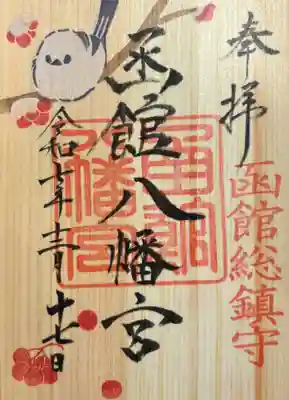 奉拝
函館総鎮守
函館八幡宮
函館
八幡宮
令和七年十二月十七日